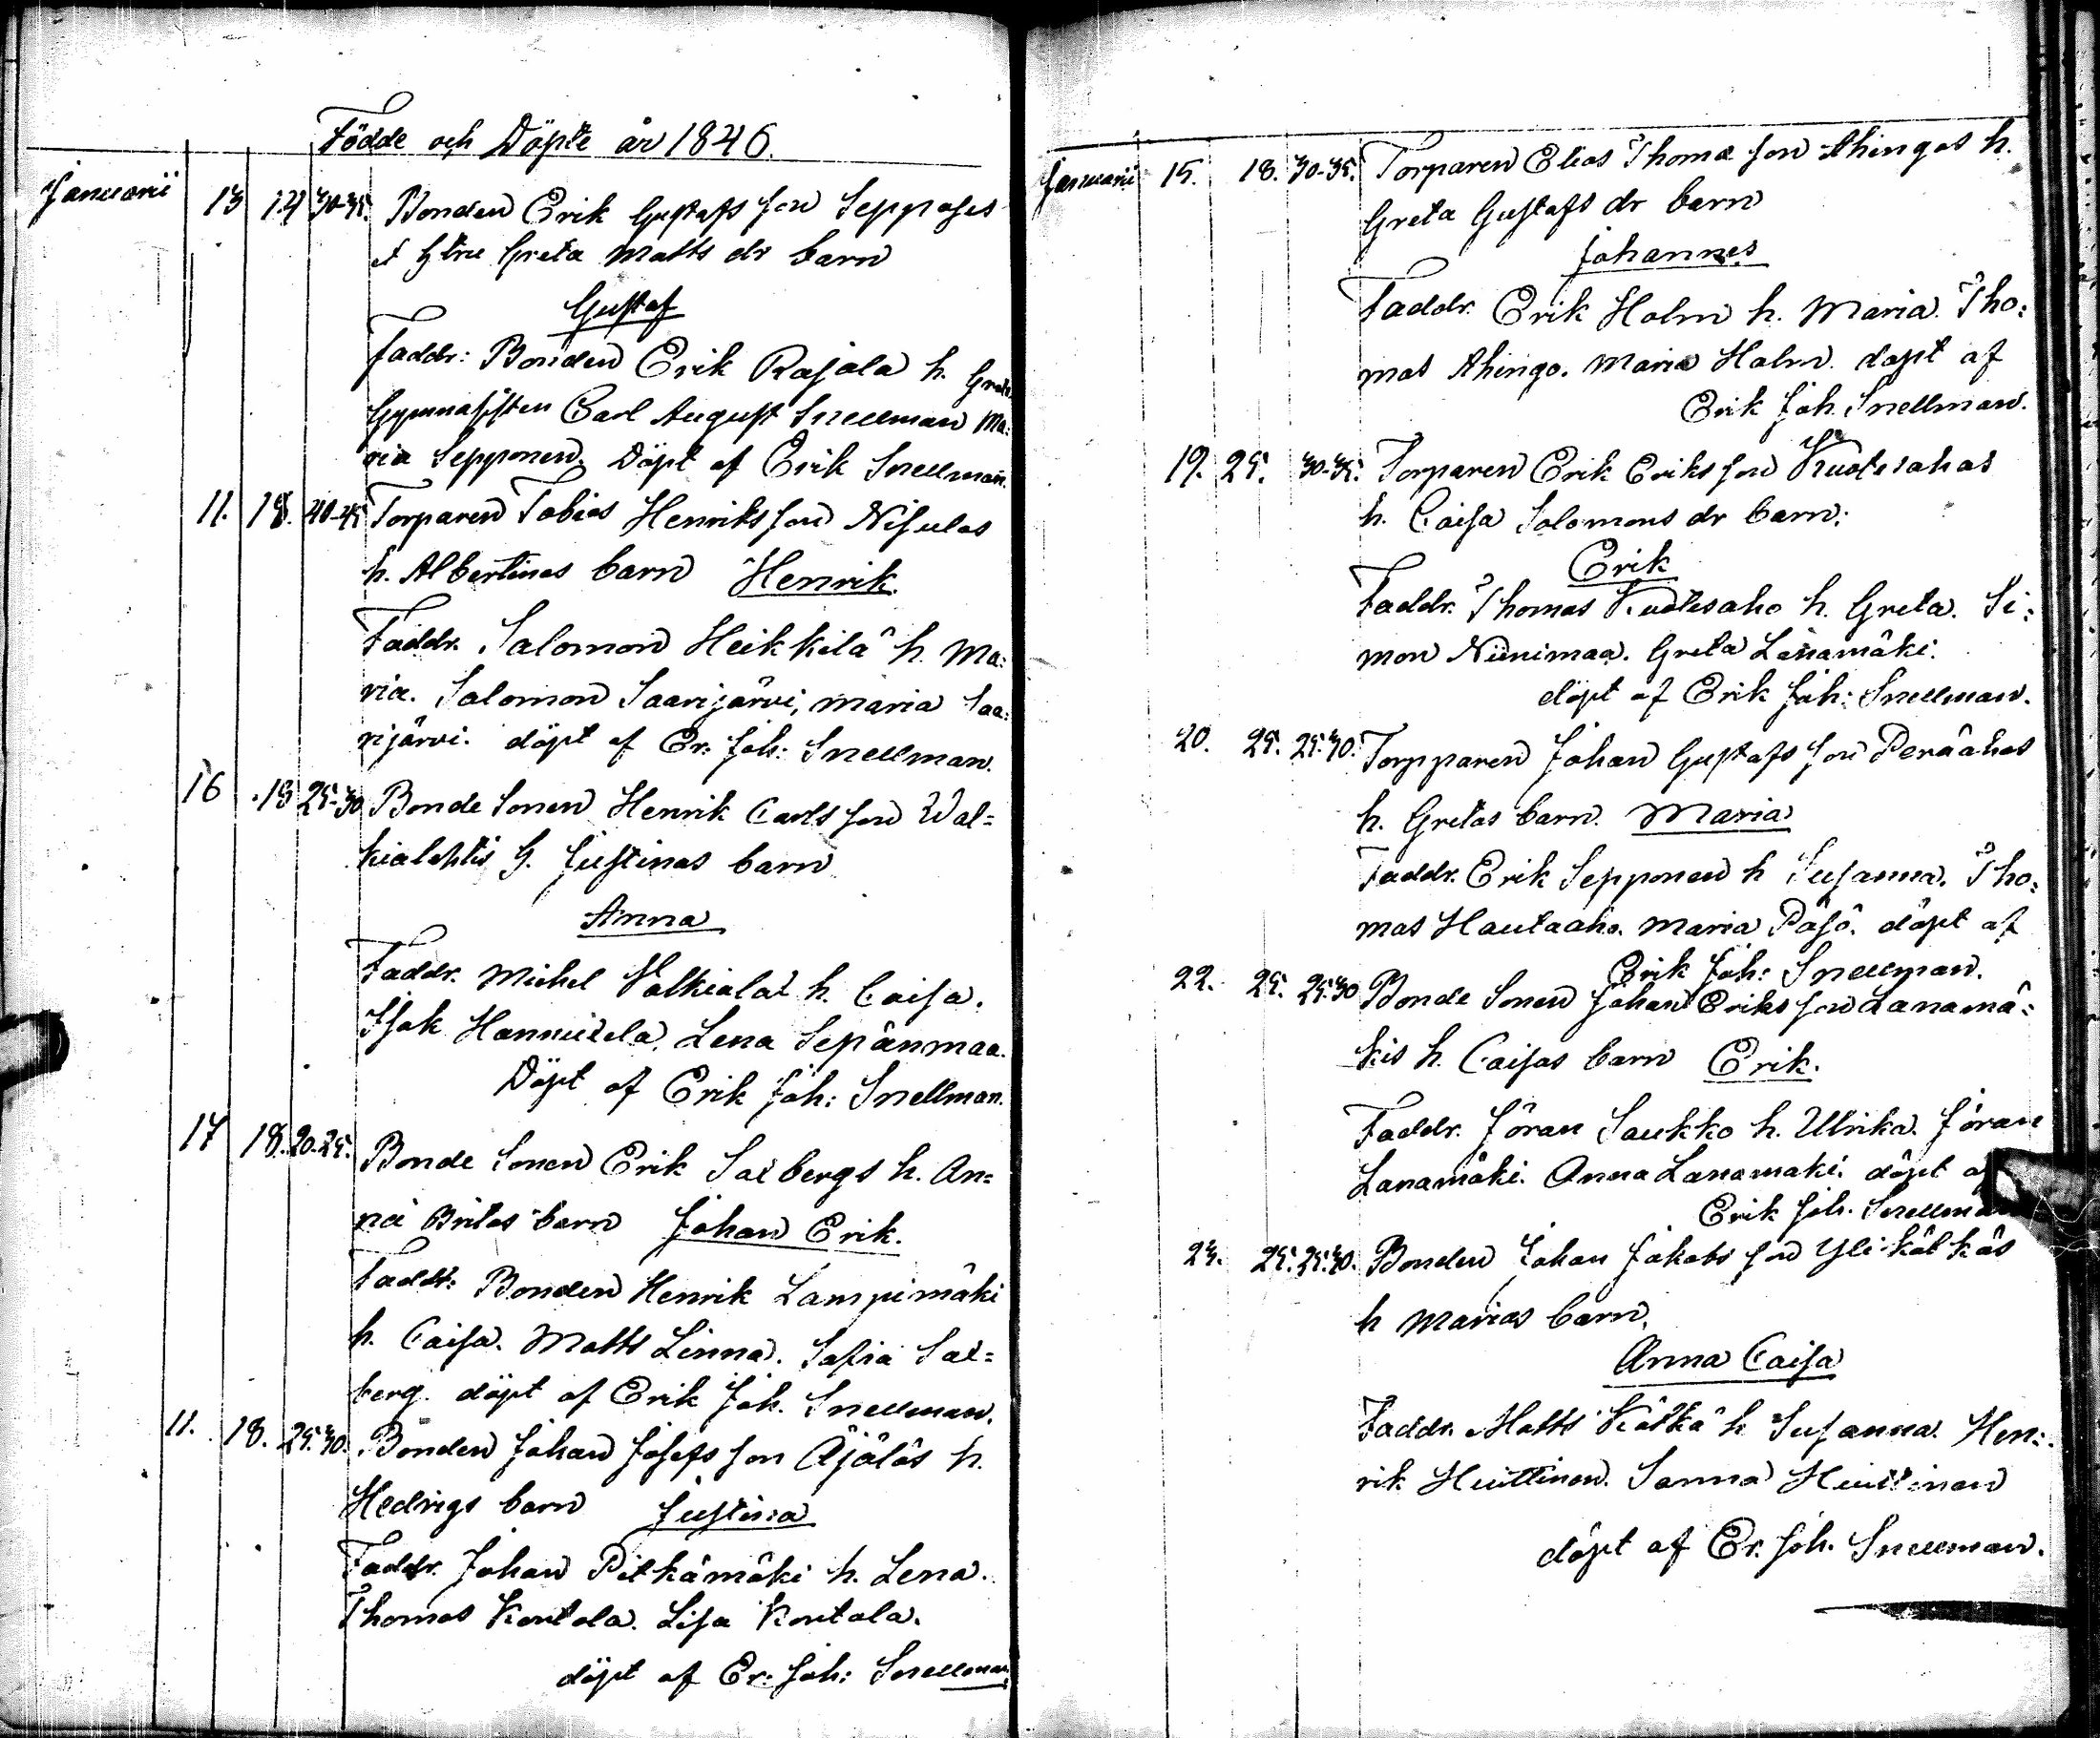 Födde och Döpte år 1846.
Januarii 13 14 30-35. Bonden Erik Gustafs son Sepposes
h Greta Matts dr barn
Gustaf
Faddr: Bonden Erik Rajala h. Greta
Gymnasisten Carl August Snellman Ma:
ria Sepponen. Döpt af Erik Snellman.
11. 18. 40-45 Torparen Tobias Henriks son Nisulas
h. Albertinas barn Henrik.
Faddr. Salomon Heikkilä h. Ma:
ria. Salomon Saarijärvi, Maria Saa:
rijärvi. döpt af Er: Joh: Snellman.
16 18 25-30 Bonde Sonen Henrik Carls son Wal=
kialahtis h. Justinas barn
Anna
Faddr. Michel Valkiala h. Caisa.
Isak Hannuxela. Lena Sepänmaa.
Döpt af Erik Joh: Snellman.
17 18. 20-25. Bonde Sonen Erik Salbergs h. An=
na Britas barn Johan Erik.
Faddr: Bonden Henrik Lampimäki
h. Caisa. Matts Linna. Safia Sal=
berg. döpt af Erik Joh. Snellman.
11. 18. 25.30. Bonden Johan Josefs son Äjäläs h.
Hedvigs barn Justina
Faddr. Johan Pitkämäki h. Lena.
Thomas Kontola. Lisa Kontola.
döpt af Er: Joh: Snellman.
Januarii 15. 18. 30-35. Torparen Elias Thomæ son Ahingos h.
Greta Gustafs dr barn
Johannes
Faddr. Erik Holm h. Maria. Tho:
mas Ahingo. Maria Holm. döpt af
Erik Joh. Snellman.
19. 25. 30-35. Torparen Erik Eriks son Kuotesahos
h. Caisa Solomons dr barn:
Erik
Faddr. Thomas Kuotesaho h. Greta. Si:
mon Niinimaa. Greta Länamäki.
döpt af Erik Joh: Snellman.
20. 25. 25.30. Torpparen Johan Gustafs son Peräahos
h. Gretas barn. Maria
Faddr. Erik Sepponen h Susanna. Tho:
mas Hautaaho. Maria Päsö. döpt af
Erik Joh: Snellman.
22. 25. 25.30 Bonde Sonen Johan Eriks son Lanamä:
kis h. Caisas barn Erik.
Faddr. Jöran Saukko h. Ulrika. Jöran
Lanamäki. Anna Lanamäki. döpt af
Erik Joh. Snellman
23. 25. 25.30. Bonden Johan Jakobs son Ylikätkäs
h Marias barn.
Anna Caisa
Faddr. Matts Kätkä h Susanna. Hen:
rik Huittinen. Sanna Huittinen
döpt af Er. Joh. Snellman.